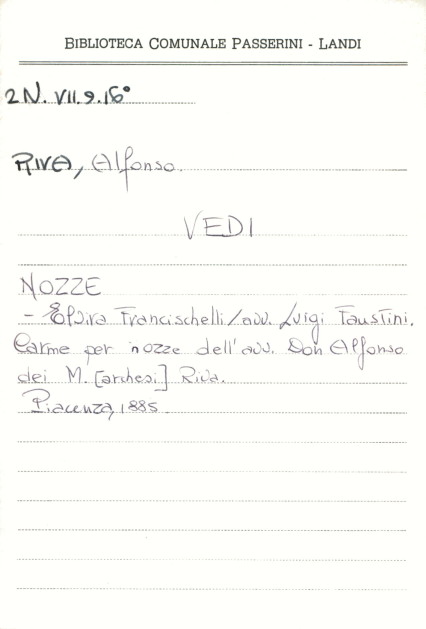 BIBLIOTECA COMUNALE PASSERINI - LANDI
2N. VII.9.16°
RIVA, Alfonso.
VEDI
NOZZE
- Elvira Francischelli/avv. Luigi Faustini.
Carme per nozze dell'avv. Don Alfonso
dei M.[archesi] Riva.
Piacenza, 1885.